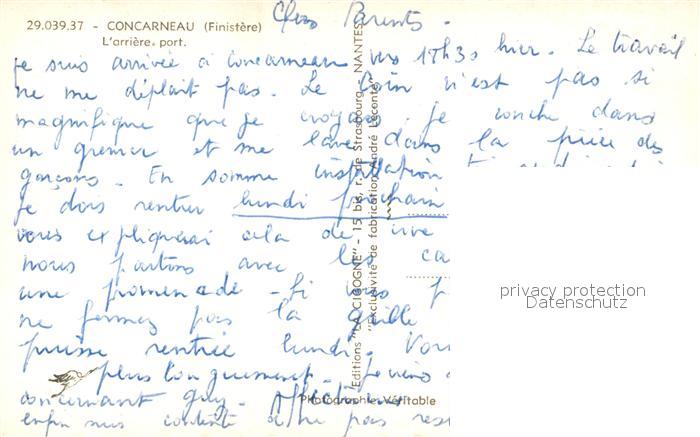 29.039.37 - CONCARNEAU (Finistère)
L'arrière-port.
Chers Parents -
je suis arrivée à Concarneau vers 17h30 hier. Le travail
ne me déplaît pas. Le coin n'est pas si
magnifique que je croyais. Je couche dans
un grenier et me lave dans la pièce des
garçons. En somme installation
Je dois rentrer lundi prochain
vous expliquerai cela de vive
nous partons avec les ca
une promenade - Si vous p
ne fermez pas la grille
puisse rentrer lundi. Vou
plus longuement. Je viens
concernant Guy. Affect
enfin suis contente de ne pas res
Editions "LA CIGOGNE" - 15 bis, r. de Strasbourg - NANTES
"exclusivité de fabrication André Leconte"
Photographie Véritable
privacy protection
Datenschutz